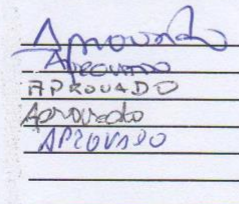 Aprovado
APROVADO
APROVADO
Aprovado
APROVADO